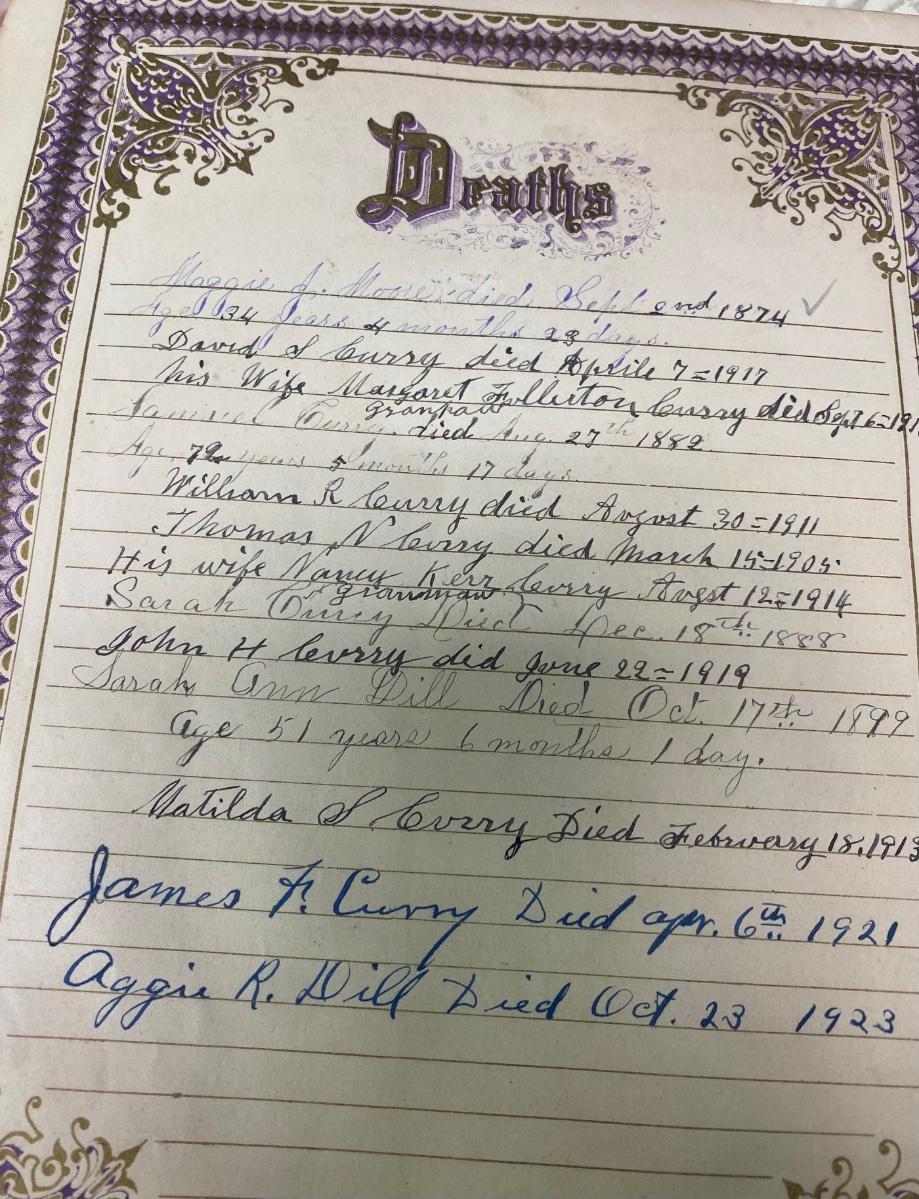 Deaths
Maggie J. Moore died Sept 2nd 1874 ✓
Age 34 years 4 months 23 days.
David S Curry died Aprile 7=1917
his Wife Margaret Fullerton Curry died Sept 6=191
Granpaw
Samuel Curry died Aug. 27th 1882
Age 72 years 5 months 17 days.
William R Curry died Avgost 30=1911
Thomas N Curry died March 15=1905
His wife Nancy Kerr Curry Avgst 12=1914
granmaw
Sarah Curry Died Dec. 18th 1888
John H Curry did June 22=1919
Sarah Ann Dill Died Oct. 17th 1899
Age 51 years 6 months 1 day.
Matilda S Curry Died February 18, 1913
James F. Curry Died apr. 6th 1921
Aggie R. Dill Died Oct. 23 1923